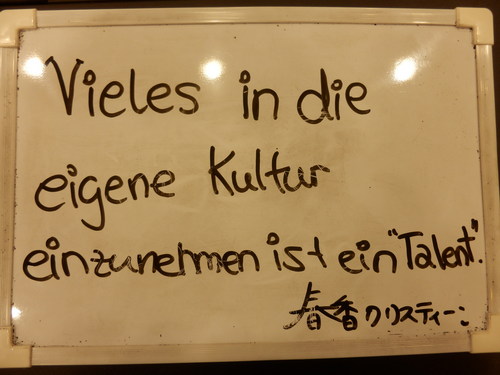 Vieles in die
eigene Kultur
einzunehmen ist ein "Talent".
春香クリスティーン